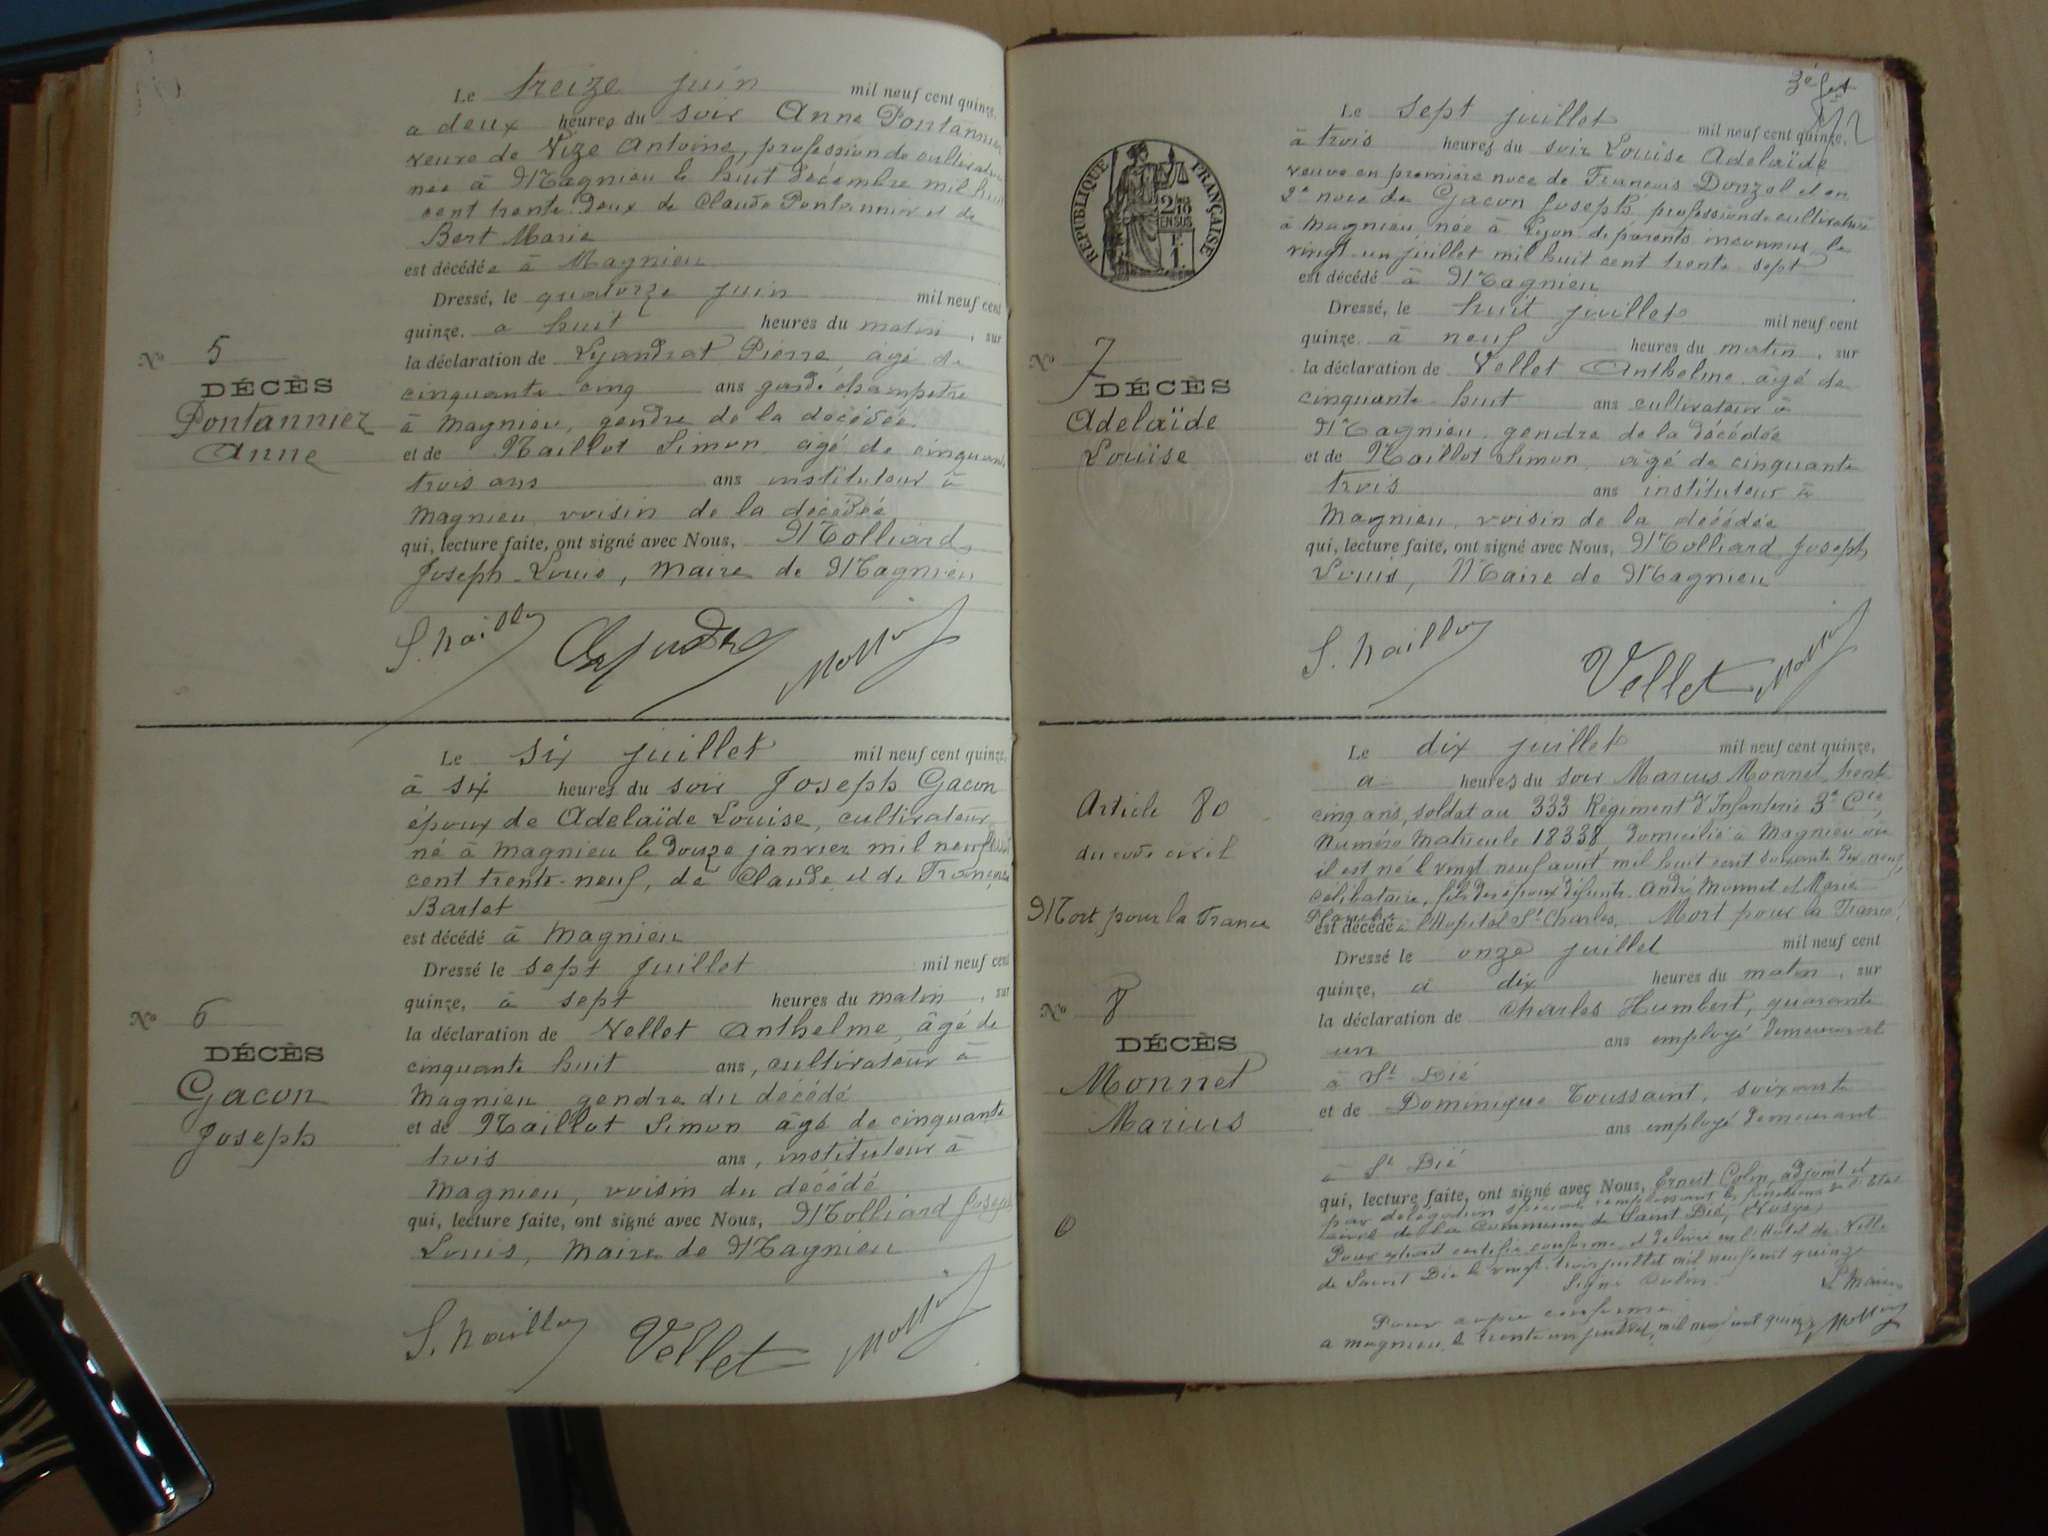 Le treize juin mil neuf cent quinze,
a deux heures du soir Anne Pontannier
veuve de Vize Antoine, profession de cultivatrice
née à Magnieu le huit décembre mil huit
cent trente deux de Claude Pontannier et de
Bert Marie
est décédée à Magnieu
Dressé, le quatorze juin mil neuf cent
quinze. a huit heures du matin, sur
la déclaration de Lyandrat Pierre âgé de
cinquante cinq ans garde champêtre
à Magnieu, gendre de la décédée
et de Naillot Simon agé de cinquante
trois ans ans instituteur à
Magnieu voisin de la décédée
qui, lecture faite, ont signé avec Nous, Molliard
Joseph-Louis, Maire de Magnieu
S. Naillot
No 5
DÉCÈS
Pontannier
Anne
Le six juillet mil neuf cent quinze,
à six heures du soir Joseph Gacon
époux de Adelaïde Louise, cultivateur
né à Magnieu le douze janvier mil
cent trente-neuf, de Claude et de Françoise
Bartet
est décédé à Magnieu
Dressé le sept Juillet mil neuf cent
quinze, à sept heures du matin, sur
la déclaration de Vellet Anthelme, âgé de
cinquante huit ans, cultivateur à
Magnieu gendre du décédé
et de Naillot Simon âgé de cinquante
trois ans, instituteur à
Magnieu, voisin du décédé
qui, lecture faite, ont signé avec Nous, Molliard Joseph
Louis, Maire de Magnieu
S. Naillot Vellet
No 6
DÉCÈS
Gacon
Joseph
3e
RÉPUBLIQUE FRANÇAISE
Le sept juillet mil neuf cent quinze,
à trois heures du soir Louise Adelaïde
veuve en première noce de François Donzel et en
2e noce de Gacon Joseph profession de cultivatrice
à Magnieu, née à Lyon de parents inconnus le
vingt-un juillet mil huit cent trente-sept
est décédé à Magnieu
Dressé, le huit juillet mil neuf cent
quinze à neuf heures du matin, sur
la déclaration de Vellet Anthelme âgé de
cinquante-huit ans cultivateur à
Magnieu gendre de la décédée
et de Naillot Simon âgé de cinquante
trois ans instituteur à
Magnieu, voisin de la décédée
qui, lecture faite, ont signé avec Nous, Molliard Joseph
Louis, Maire de Magnieu
S. Naillot Vellet
No 7
DÉCÈS
Adelaïde
Louise
Le dix juillet mil neuf cent quinze,
a heures du soir Marius Monnet trente
cinq ans, soldat au 333 Régiment d'Infanterie 3e Cie,
Numéro Matricule 18338, domicilié à Magnieu où
il est né le vingt neuf août mil huit cent soixante dix neuf,
célibataire, fils des époux défunts André Monnet et Marie
Planche
est décédé à l'Hopital St Charles, Mort pour la France!
Dressé le onze juillet mil neuf cent
quinze, a dix heures du matin, sur
la déclaration de Charles Humbert, quarante
un ans employé demeurant
à St Dié
et de Dominique Toussaint, soixante
ans employé demeurant
à St Dié
qui, lecture faite, ont signé avec Nous, Ernest Colin, adjoint et
par délégation spéciale remplissant les fonctions de l'Etat
civil de la Commune de Saint Dié, Vosges,
Pour extrait certifié conforme et délivré en l'Hôtel de Ville
de Saint Dié le vingt trois juillet mil neuf cent quinze
Signé Colin
Le Maire
Pour copie conforme
a Magnieu le trente un juillet mil neuf cent quinze
Article 80
du code civil
Mort pour la France
No 8
DÉCÈS
Monnet
Marius